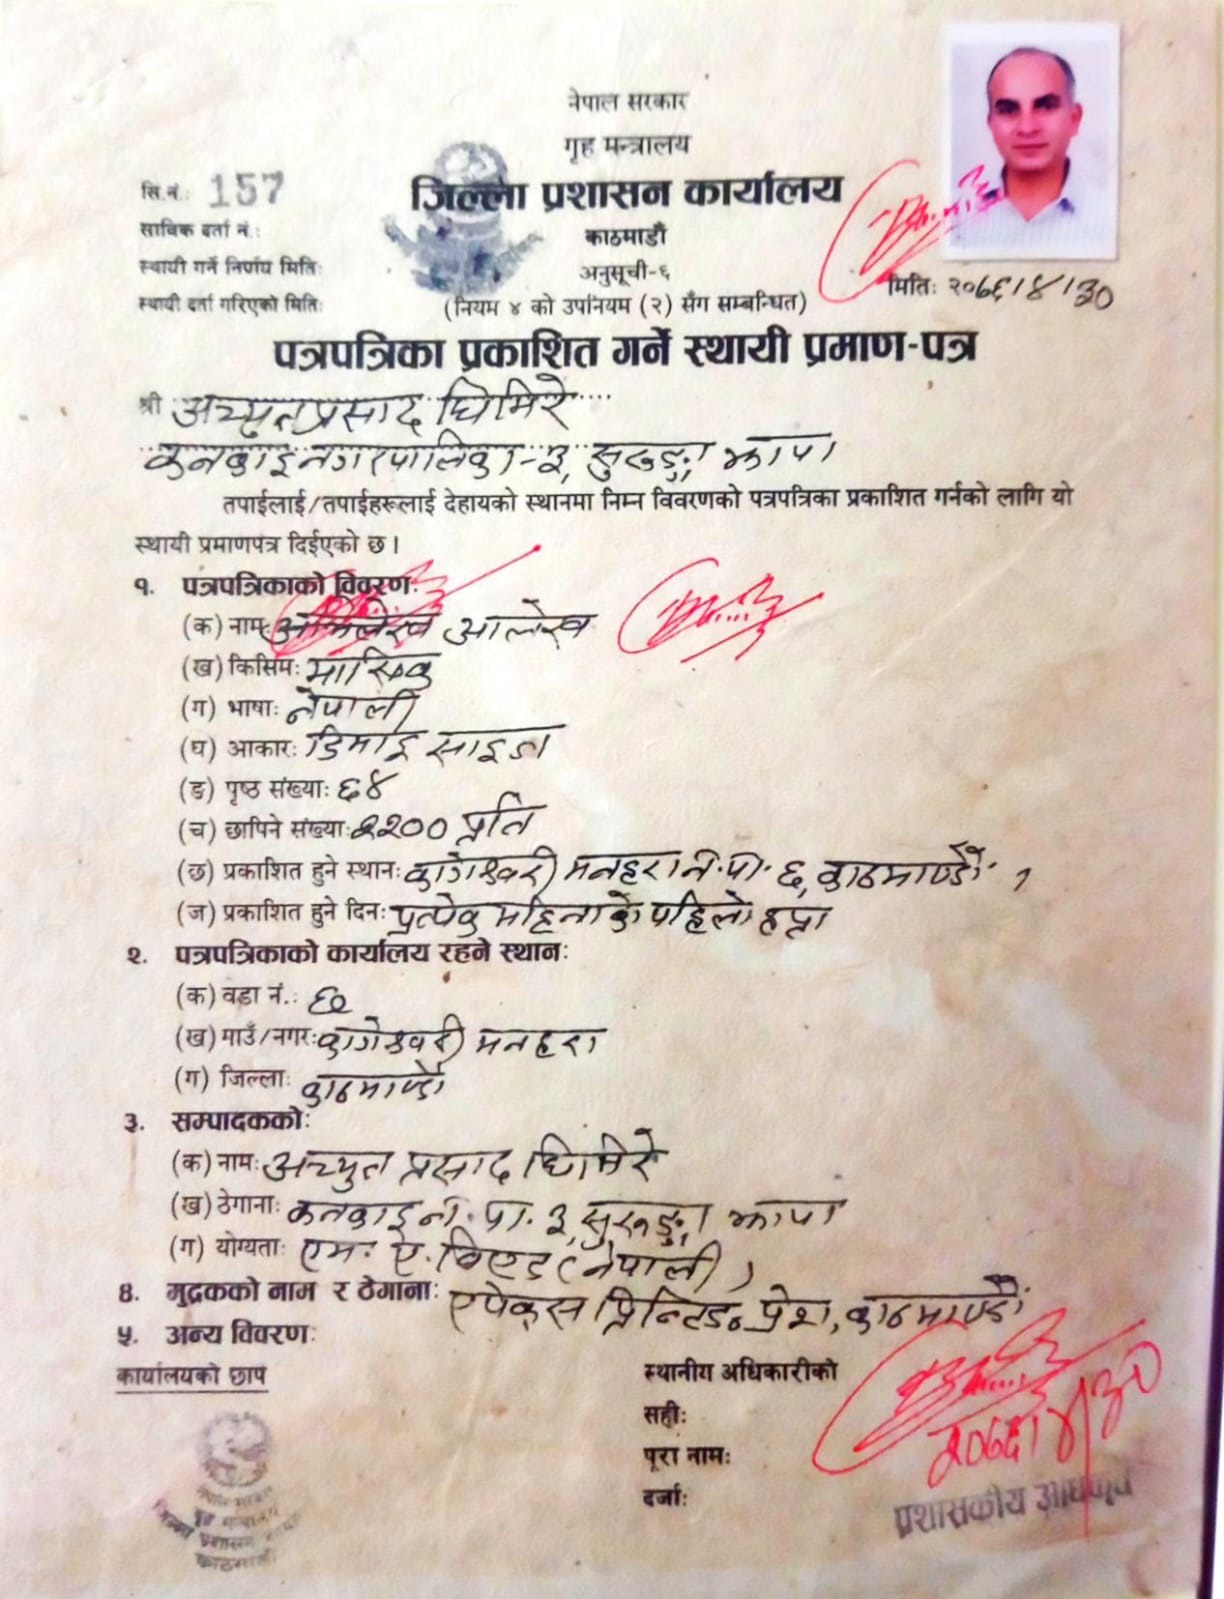 नेपाल सरकार
गृह मन्त्रालय
जिल्ला प्रशासन कार्यालय
काठमाडौं
अनुसूची-६
(नियम ४ को उपनियम (२) सँग सम्बन्धित)
सि.नं.: 157
साविक दर्ता नं.:
स्थायी गर्ने निर्णय मिति:
स्थायी दर्ता गरिएको मिति:
मिति: २०७६।४।३०
पत्रपत्रिका प्रकाशित गर्ने स्थायी प्रमाण-पत्र
श्री अच्युतप्रसाद घिमिरे
कनकाई नगरपालिका-३, सुरुङ्गा झापा
तपाईलाई/तपाईहरूलाई देहायको स्थानमा निम्न विवरणको पत्रपत्रिका प्रकाशित गर्नको लागि यो
स्थायी प्रमाणपत्र दिईएको छ।
१. पत्रपत्रिकाको विवरण:
(क) नाम: आलेख
(ख) किसिम: मासिक
(ग) भाषा: नेपाली
(घ) आकार: डिमाई साइज
(ङ) पृष्ठ संख्या: ६४
(च) छापिने संख्या: प्रति
(छ) प्रकाशित हुने स्थान: कागेश्वरी मनहरा न.पा. ६, काठमाण्डौं
(ज) प्रकाशित हुने दिन: प्रत्येक महिनाको पहिलो हप्ता
२. पत्रपत्रिकाको कार्यालय रहने स्थान:
(क) वडा नं.: ६
(ख) गाउँ/नगर: कागेश्वरी मनहरा
(ग) जिल्ला: काठमाण्डौं
३. सम्पादकको:
(क) नाम: अच्युत प्रसाद घिमिरे
(ख) ठेगाना: कनकाई न.पा. ३, सुरुङ्गा झापा
(ग) योग्यता: एम. ए. विएड (नेपाली)
४. मुद्रकको नाम र ठेगाना: एपेक्स प्रिन्टिङ प्रेश, काठमाण्डौं
५. अन्य विवरण:
कार्यालयको छाप
स्थानीय अधिकारीको
सही:
२०७६।४।३०
पूरा नाम:
दर्जा:
प्रशासकीय अधिकृत
नेपाल सरकार
गृह मन्त्रालय
जिल्ला प्रशासन कार्यालय
काठमाडौं